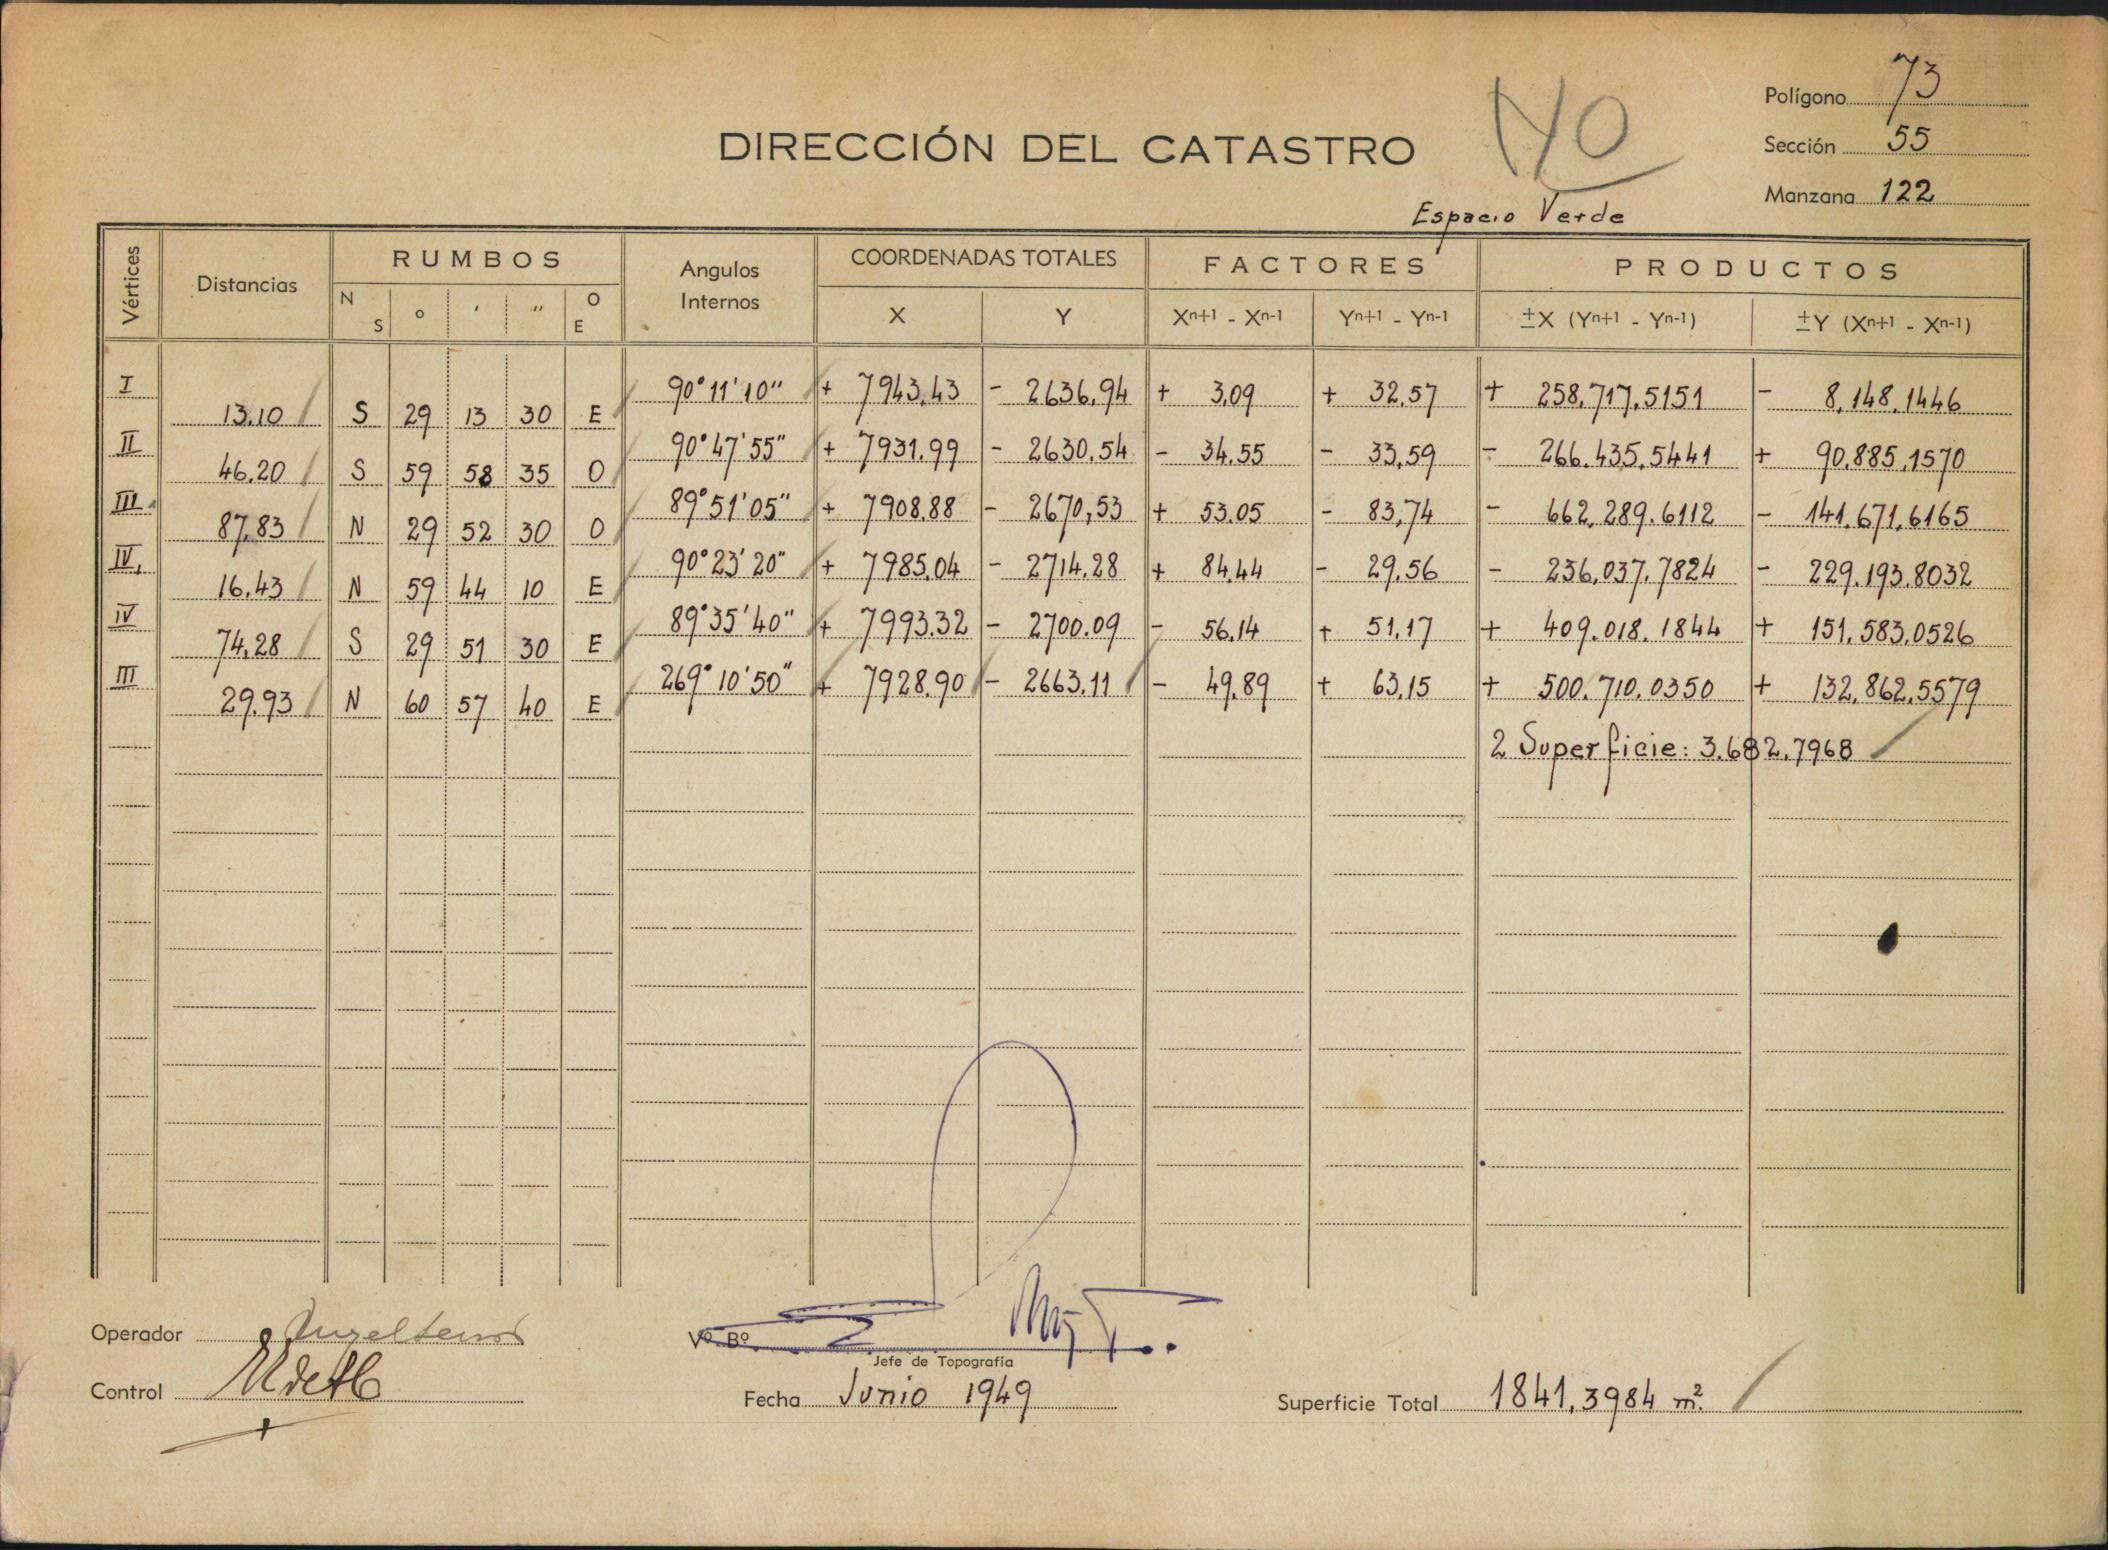 Polígono 73
NO
DIRECCIÓN DEL CATASTRO
Sección 55
Manzana 122
Espacio Verde
Vértices Distancias RUMBOS Angulos Internos COORDENADAS TOTALES FACTORES PRODUCTOS
N S o ' '' O E X Y Xn+1 - Xn-1 Yn+1 - Yn-1 ±X (Yn+1 - Yn-1) ±Y (Xn+1 - Xn-1)
I 90°11'10" + 7943,43 - 2636,94 + 3,09 + 32,57 + 258.717,5151 - 8.148,1446
13,10 S 29 13 30 E
II 90°47'55" + 7931,99 - 2630,54 - 34,55 - 33,59 - 266.435,5441 + 90.885,1570
46,20 S 59 58 35 O
III 89°51'05" + 7908,88 - 2670,53 + 53,05 - 83,74 - 662.289,6112 - 141.671,6165
87,83 N 29 52 30 O
IV, 90°23'20" + 7985,04 - 2714,28 + 84,44 - 29,56 - 236.037,7824 - 229.193,8032
16,43 N 59 44 10 E
IV 89°35'40" + 7993,32 - 2700,09 - 56,14 + 51,17 + 409.018,1844 + 151.583,0526
74,28 S 29 51 30 E
III 269°10'50" + 7928,90 - 2663,11 - 49,89 + 63,15 + 500.710,0350 + 132.862,5579
29,93 N 60 57 40 E
2 Superficie: 3.682,7968
Operador
Vº Bº
Jefe de Topografía
Control
Fecha Junio 1949
Superficie Total 1841,3984 m².